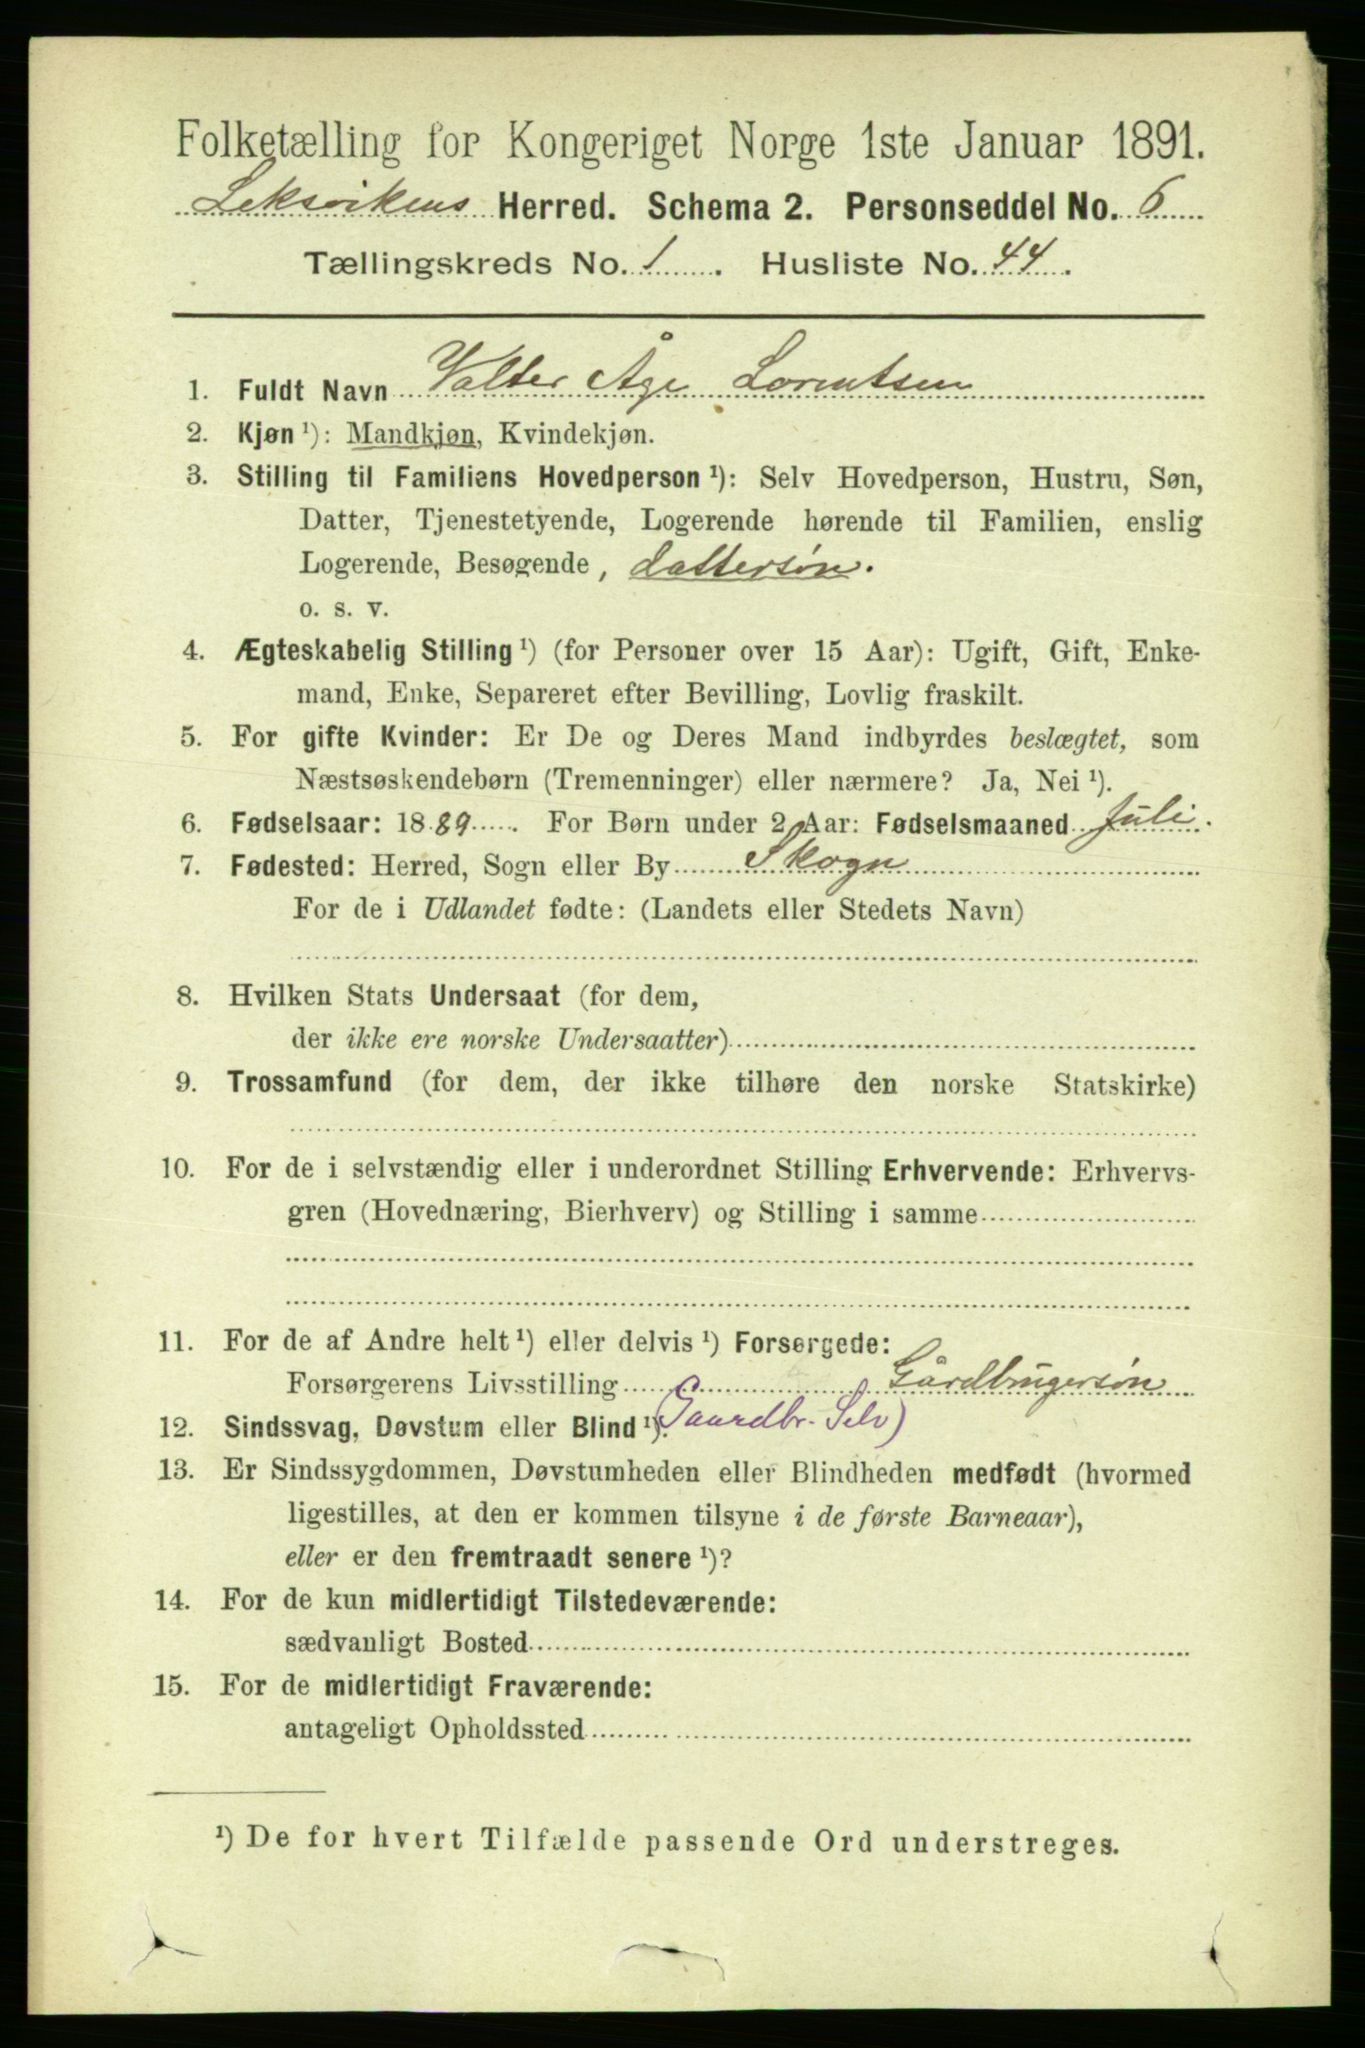 Folketælling for Kongeriget Norge 1ste Januar 1891.
Leksvikens Herred. Schema 2. Personseddel No. 6
Tællingskreds No. 1. Husliste No. 44.
1. Fuldt Navn Valter Åge Lorentsen
2. Kjøn ¹): Mandkjøn, Kvindekjøn.
3. Stilling til Familiens Hovedperson ¹): Selv Hovedperson, Hustru, Søn,
Datter, Tjenestetyende, Logerende hørende til Familien, enslig
Logerende, Besøgende, dattersøn.
o. s. v.
4. Ægteskabelig Stilling ¹) (for Personer over 15 Aar): Ugift, Gift, Enke-
mand, Enke, Separeret efter Bevilling, Lovlig fraskilt.
5. For gifte Kvinder: Er De og Deres Mand indbyrdes beslægtet, som
Næstsøskendebørn (Tremenninger) eller nærmere? Ja, Nei ¹).
6. Fødselsaar: 1889. For Børn under 2 Aar: Fødselsmaaned Juli.
7. Fødested: Herred, Sogn eller By Skogn
For de i Udlandet fødte: (Landets eller Stedets Navn)
8. Hvilken Stats Undersaat (for dem,
der ikke ere norske Undersaatter)
9. Trossamfund (for dem, der ikke tilhøre den norske Statskirke)
10. For de i selvstændig eller i underordnet Stilling Erhvervende: Erhvervs-
gren (Hovednæring, Bierhverv) og Stilling i samme
11. For de af Andre helt ¹) eller delvis ¹) Forsørgede:
Forsørgerens Livsstilling Gårdbrugersøn
12. Sindssvag, Døvstum eller Blind ¹). (Gaardbr. Selv)
13. Er Sindssygdommen, Døvstumheden eller Blindheden medfødt (hvormed
ligestilles, at den er kommen tilsyne i de første Barneaar),
eller er den fremtraadt senere ¹)?
14. For de kun midlertidigt Tilstedeværende:
sædvanligt Bosted
15. For de midlertidigt Fraværende:
antageligt Opholdssted
¹) De for hvert Tilfælde passende Ord understreges.